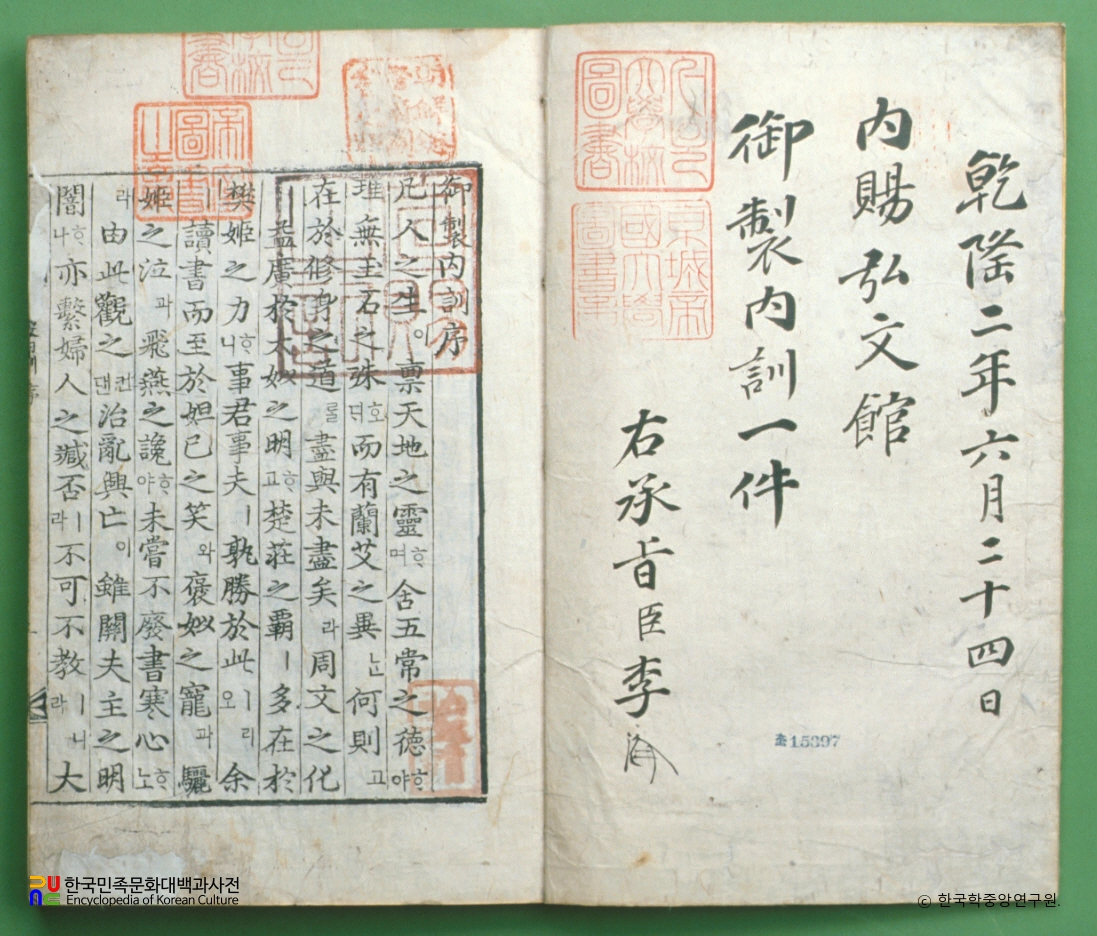 乾隆二年六月二十四日
内賜弘文館
御製内訓一件
右承旨臣李
15897
御製内訓序
凡人之生。稟天地之靈ᄒᆞ며 含五常之德ᄒᆞ야
理無玉石之殊호ᄃᆡ 而有蘭艾之異ᄂᆞᆫ 何則고
在於修身之道ᄅᆞᆯ 盡與未盡矣라 周文之化
ㅣ 益廣於太姒之明ᄒᆞ고 楚莊之覇ㅣ 多在於
樊姬之力ᄒᆞ니 事君事夫ㅣ 孰勝於此ㅣ리오 余
ㅣ 讀書而至於妲己之笑와 褒姒之寵과 驪
姬之泣과 飛燕之讒ᄒᆞ야 未嘗不廢書寒心ᄒᆞ노
라 由此觀之컨댄 治亂興亡이 雖關夫主之明
闇ᄒᆞ나 亦繫婦人之臧否ㅣ라 不可不教ㅣ니라 大
한국민족문화대백과사전
Encyclopedia of Korean Culture
© 한국학중앙연구원.